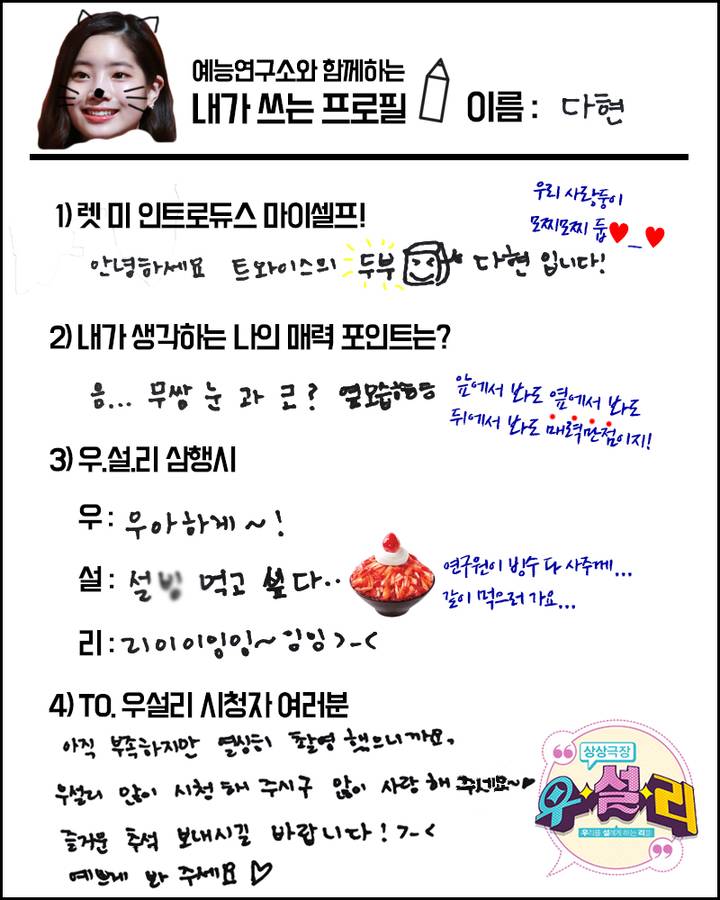 예능연구소와 함께하는
내가 쓰는 프로필
이름 : 다현
1) 렛 미 인트로듀스 마이셀프!
우리 사랑둥이
모찌모찌 둡♥_♥
안녕하세요 트와이스의 두부 다현 입니다!
2) 내가 생각하는 나의 매력 포인트는?
음... 무쌍 눈 과 코?
앞에서 봐도 옆에서 봐도
뒤에서 봐도 매력만점이지!
3) 우.설.리 삼행시
우 : 우아하게~!
설 : 설빙 먹고 싶다..
연구원이 빙수 다 사주께...
같이 먹으러 가요...
리 : 리이이잉잉~ 잉잉>_<
4) TO. 우설리 시청자 여러분
아직 부족하지만 열심히 촬영 했으니까요,
우설리 많이 시청 해 주시구 많이 사랑 해 주세요~♥
즐거운 추석 보내시길 바랍니다! >_<
예쁘게 봐 주세요♡
상상극장
우설리
우리를 설레게 하는 리플